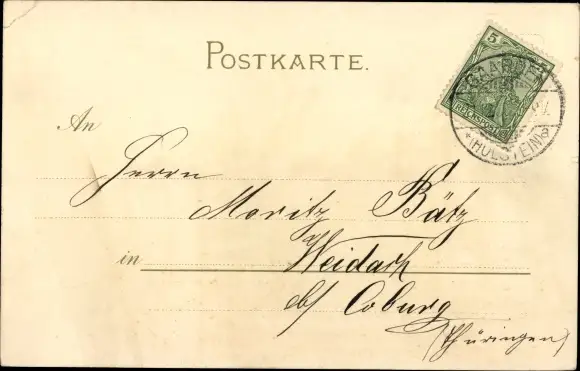 POSTKARTE.
5
REICHSPOST
GAARDEN
* (HOLSTEIN) a
An
Herrn
Moritz Bätz
in Weidach
b/ Coburg
(Thüringen)